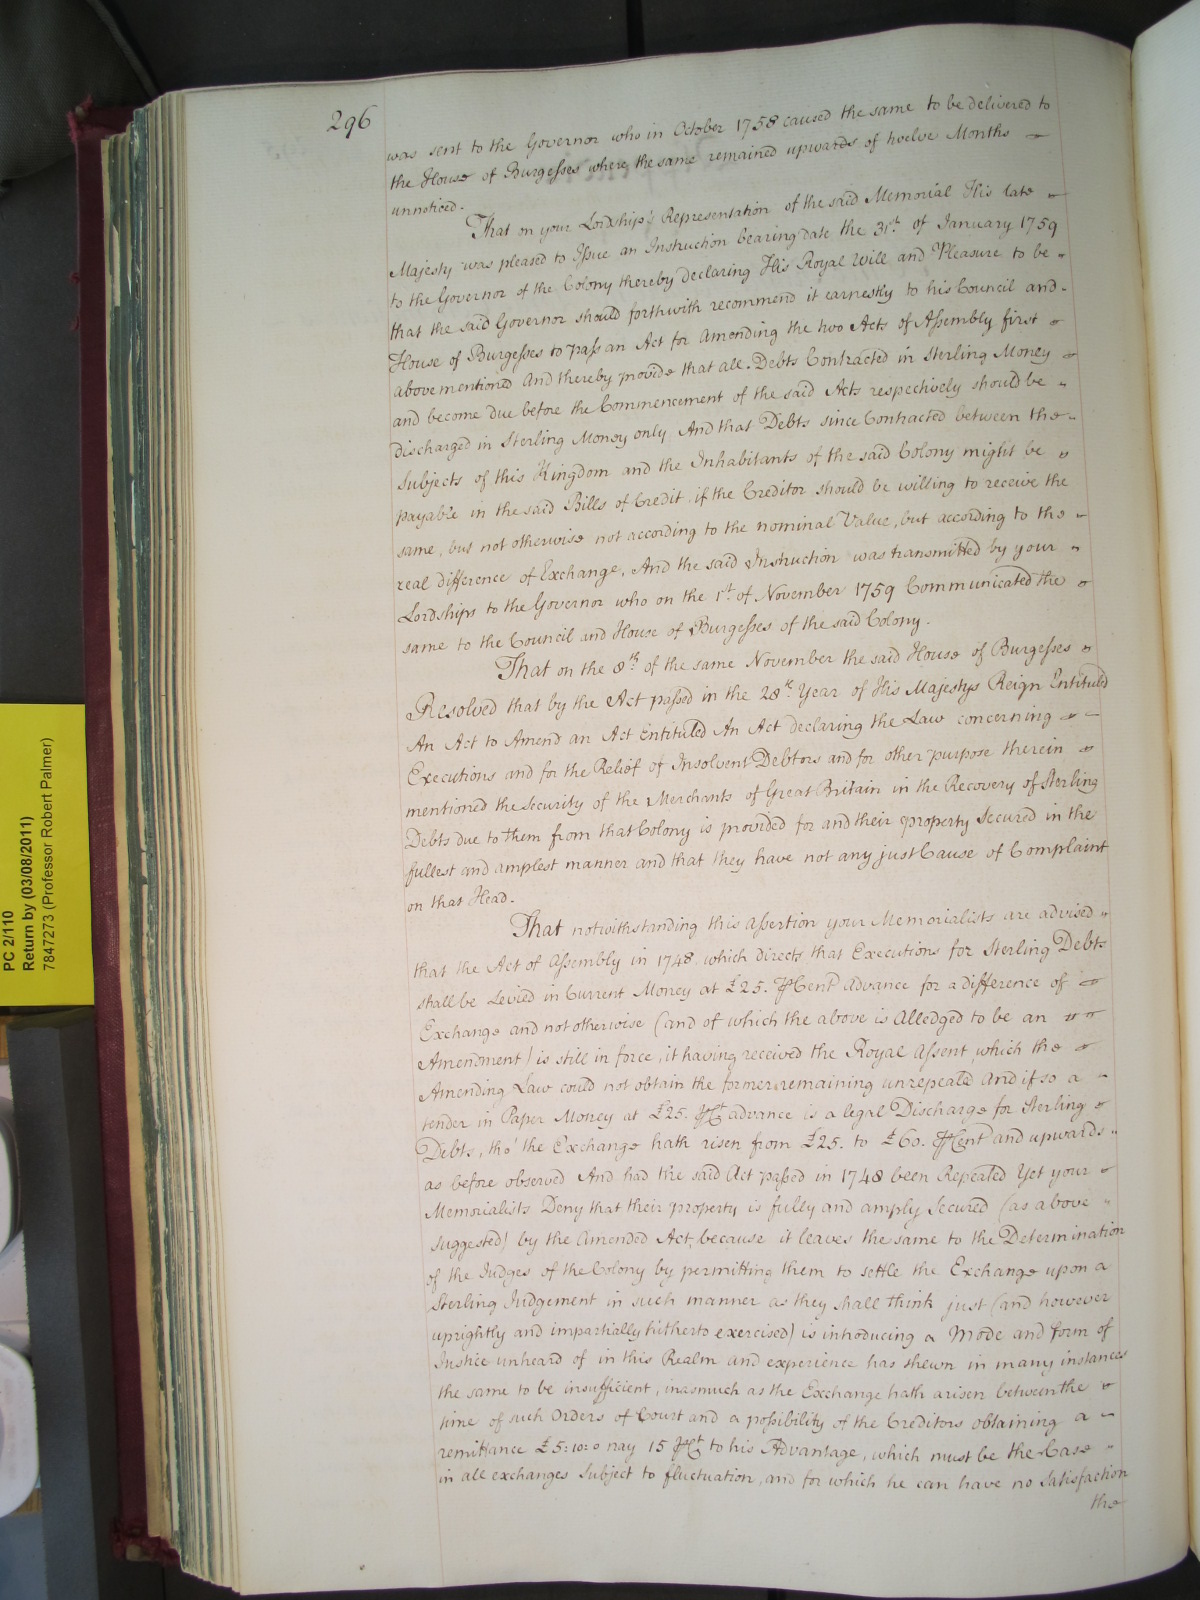 296
was sent to the Governor who in October 1758 caused the same to be delivered to
the House of Burgesses where the same remained upwards of twelve Months
unnoticed.
That on your Lordship's Representation of the said Memorial His late
Majesty was pleased to Issue an Instruction bearing date the 31st. of January 1759
to the Governor of the Colony thereby declaring His Royal Will and Pleasure to be
that the said Governor should forthwith recommend it earnestly to his Council and
House of Burgesses to pass an Act for Amending the two Acts of Assembly first
abovementioned And thereby provide that all Debts Contracted in Sterling Money
and become Due before the Commencement of the said Acts respectively should be
discharged in Sterling Money only And that Debts since Contracted between the
Subjects of this Kingdom and the Inhabitants of the said Colony might be
payable in the said Bills of Credit, if the Creditor should be willing to receive the
same, but not otherwise not according to the nominal Value, but according to the
real difference of Exchange, And the said Instruction was transmitted by your
Lordships to the Governor who on the 1st. of November 1759 Communicated the
same to the Council and House of Burgesses of the said Colony.
That on the 8th. of the same November the said House of Burgesses
Resolved that by the Act passed in the 28th. Year of His Majestys Reign Entituled
An Act to Amend an Act Entituled An Act declaring the Law concerning
Executions and for the Relief of Insolvent Debtors and for other purpose therein
mentioned the Security of the Merchants of Great Britain in the Recovery of Sterling
Debts due to them from that Colony is provided for and their property Secured in the
fullest and amplest manner and that they have not any just Cause of Complaint
on that Head.
That notwithstanding this Assertion your Memorialists are advised
that the Act of Assembly in 1748, which directs, that Executions for Sterling Debts
shall be Levied in Current Money at £25. ⅌ Cent advance for a difference of
Exchange and not otherwise (and of which the above is Alledged to be an
Amendment) is still in force, it having received the Royal Assent, which the
Amending Law could not obtain the former remaining unrepeald And if so a
tender in Paper Money at £25. ⅌ Ct advance is a legal Discharge for Sterling
Debts, tho' the Exchange hath risen from £25. to £60. ⅌ Cent and upwards
as before observed And had the said Act passed in 1748 been Repealed Yet your
Memorialists Deny that their property is fully and amply Secured (as above
suggested) by the Amended Act, because it leaves the same to the Determination
of the Judges of the Colony by permitting them to settle the Exchange upon a
Sterling Judgement in such manner as they shall think just (and however
uprightly and impartially hitherto exercised) is introducing a Mode and form of
Justice unheard of in this Realm and experience has shewn in many instances
the same to be insufficient, inasmuch as the Exchange hath arisen between the
time of such Orders of Court and a possibility of the Creditors obtaining a
remittance £5:10:0 nay 15 ⅌ Ct to his Advantage, which must be the Case
in all exchanges Subject to fluctuation, and for which he can have no Satisfaction
the
PC 2/110
Return by (03/08/2011)
7847273 (Professor Robert Palmer)